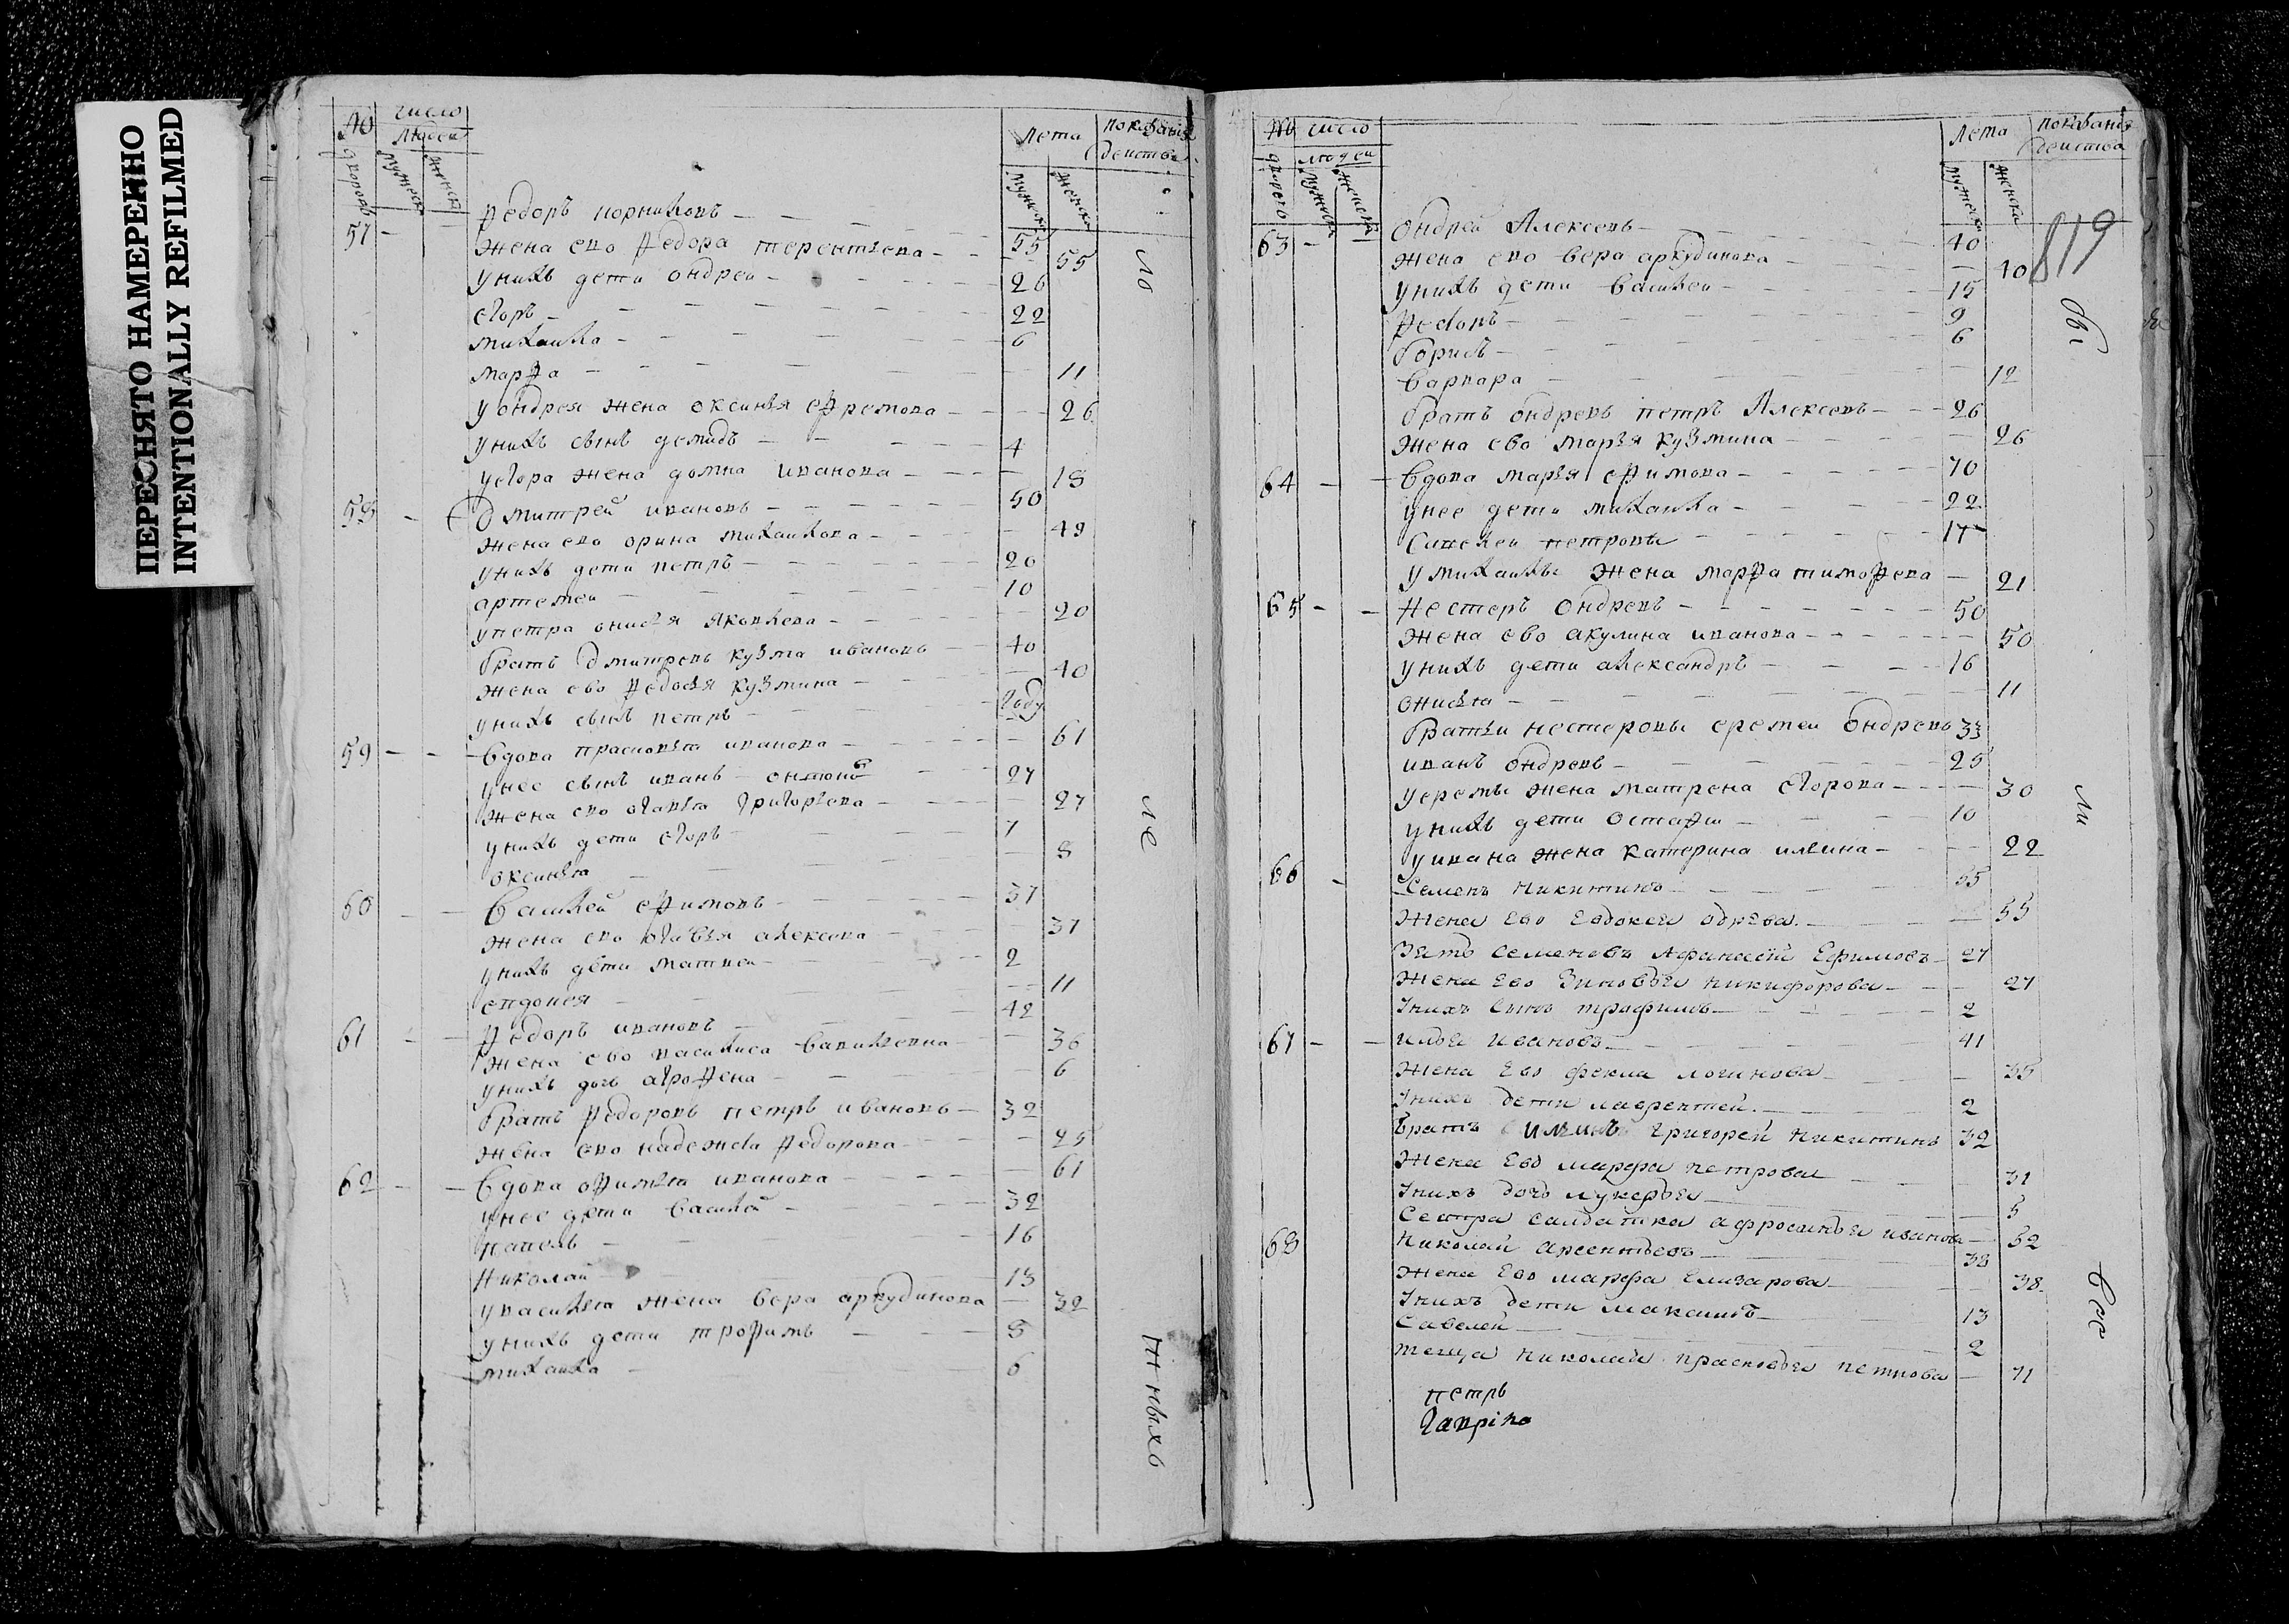 ПЕРЕСНЯТО НАМЕРЕННО
INTENTIONALLY REFILMED
№ число Лета показания
дворовъ людей действа
мужеска женска мужеска женска
57 Федоръ 55
жена ево Федора терентьева 55
у нихъ дети ондреи 26
егоръ 22
михаила 6
марфа 11
у ондрея жена оксинья ефремова 26
у нихъ сынъ демидъ 4
у егора жена домна иванова 18
58 Дмитрей ивановъ 50
жена ево орина михаилова 49
у нихъ дети петръ 20
артемеи 10
у петра онисья яковлева 20
братъ дмитревъ кузма ивановъ 40
жена ево федосья кузмина 40
у нихъ сынъ петръ году
59 вдова прасковья иванова 61
у нее сынъ иванъ онтоновъ 27
жена ево огавья григорьева 27
у нихъ дети егоръ 7
оксинья 8
60 Василей ефимовъ 37
жена ево огавья алексева 37
у нихъ дети матвеи 2
евдокея 11
61 Федоръ ивановъ 42
жена ево василиса васильевна 36
у нихъ дочь агрофена 6
братъ федоровъ петръ ивановъ 32
жена ево надежда федорова 25
62 вдова офимья иванова 61
у нее дети василей 32
16
николаи 13
у василья жена вера аркудинова 32
у нихъ дети трофимъ 8
михаила 6
ло
ле
нныхъ
№ число Лета показания
дворего людеи действа
мужеска женска мужеска женска
819
63 ондрей Алексевъ 40
жена ево вера аркудинова 40
у нихъ дети василеи 15
Федоръ 9
борисъ 6
варвара 12
братъ ондревъ петръ Алексевъ 26
жена ево марья кузмина 26
64 вдова марья ефимова 70
у нее дети михаила 22
савелеи петровы 17
у михаилы жена марфа тимофева 21
65 нестеръ ондревъ 50
жена ево акулина иванова 50
у нихъ дети александръ 16
онисья 11
братьи нестеровы еремеи ондревъ 33
иванъ ондревъ 25
у еремы жена матрена егорова 30
у нихъ дети остафи 10
у ивана жена катерина ильина 22
66 Семенъ никитинъ 55
жена ево евдокея 55
зять семеновъ Афанасей Ефимовъ 27
жена ево зиновья никифорова 27
у нихъ сынъ трофимъ 2
67 илья ивановъ 41
жена ево фекла логинова 35
у нихъ дети лаврентей 2
братъ ильинъ григорей никитинъ 32
жена ево марфа петрова 31
у нихъ дочь лукерья 5
сестра салдатка афросинья иванова 52
68 николай арсентьевъ 38
жена ево марфа елизарова 38
у нихъ дети максимъ 13
савелей 2
теща николая прасковья петрова 71
петръ
гаврiла
бы
ли
все